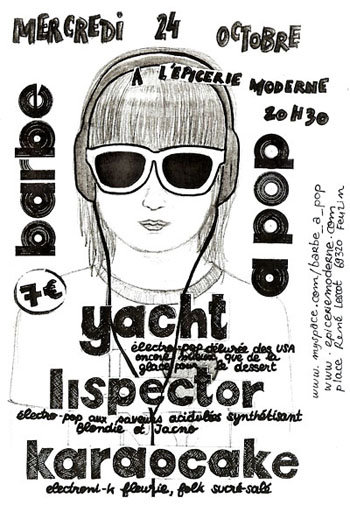 MERCREDI 24 OCTOBRE
A L'EPICERIE MODERNE
20H30
barbe
a pop
7€
yacht
électro-pop délurée des USA
encore mieux que de la
glace pour le dessert
lispector
électro-pop aux saveurs acidulées synthétisant
Blondie et Jacno
karaocake
electroni-k fleurie, folk sucré-salé
www.myspace.com/barbe_a_pop
www.epiceriemoderne.com
place René Lescot 69320 Feyzin